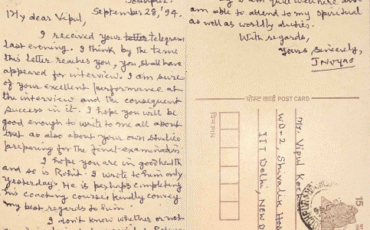 September 28, '94.
My dear Vipul,
I received your telegram
last evening. I think by the time
this letter reaches you, you shall have
appeared for interview. I am sure
of your excellent performance at
the interview and the consequent
success in it. I hope you will be
good enough to write to me all about
that as also about your own studies
preparing for the final examination
I hope you are in good health
and so is Rohit. I wrote to him only
yesterday. He is perhaps completing
his coaching course. Kindly convey
my best regards to him.
I don't know whether or not
am able to attend to my spiritual
as well as worldly duties.
With regards,
Yours Sincerely,
पोस्ट कार्ड POST CARD
Mr. Vipul
Shivalik
IIT Delhi, NEW
15